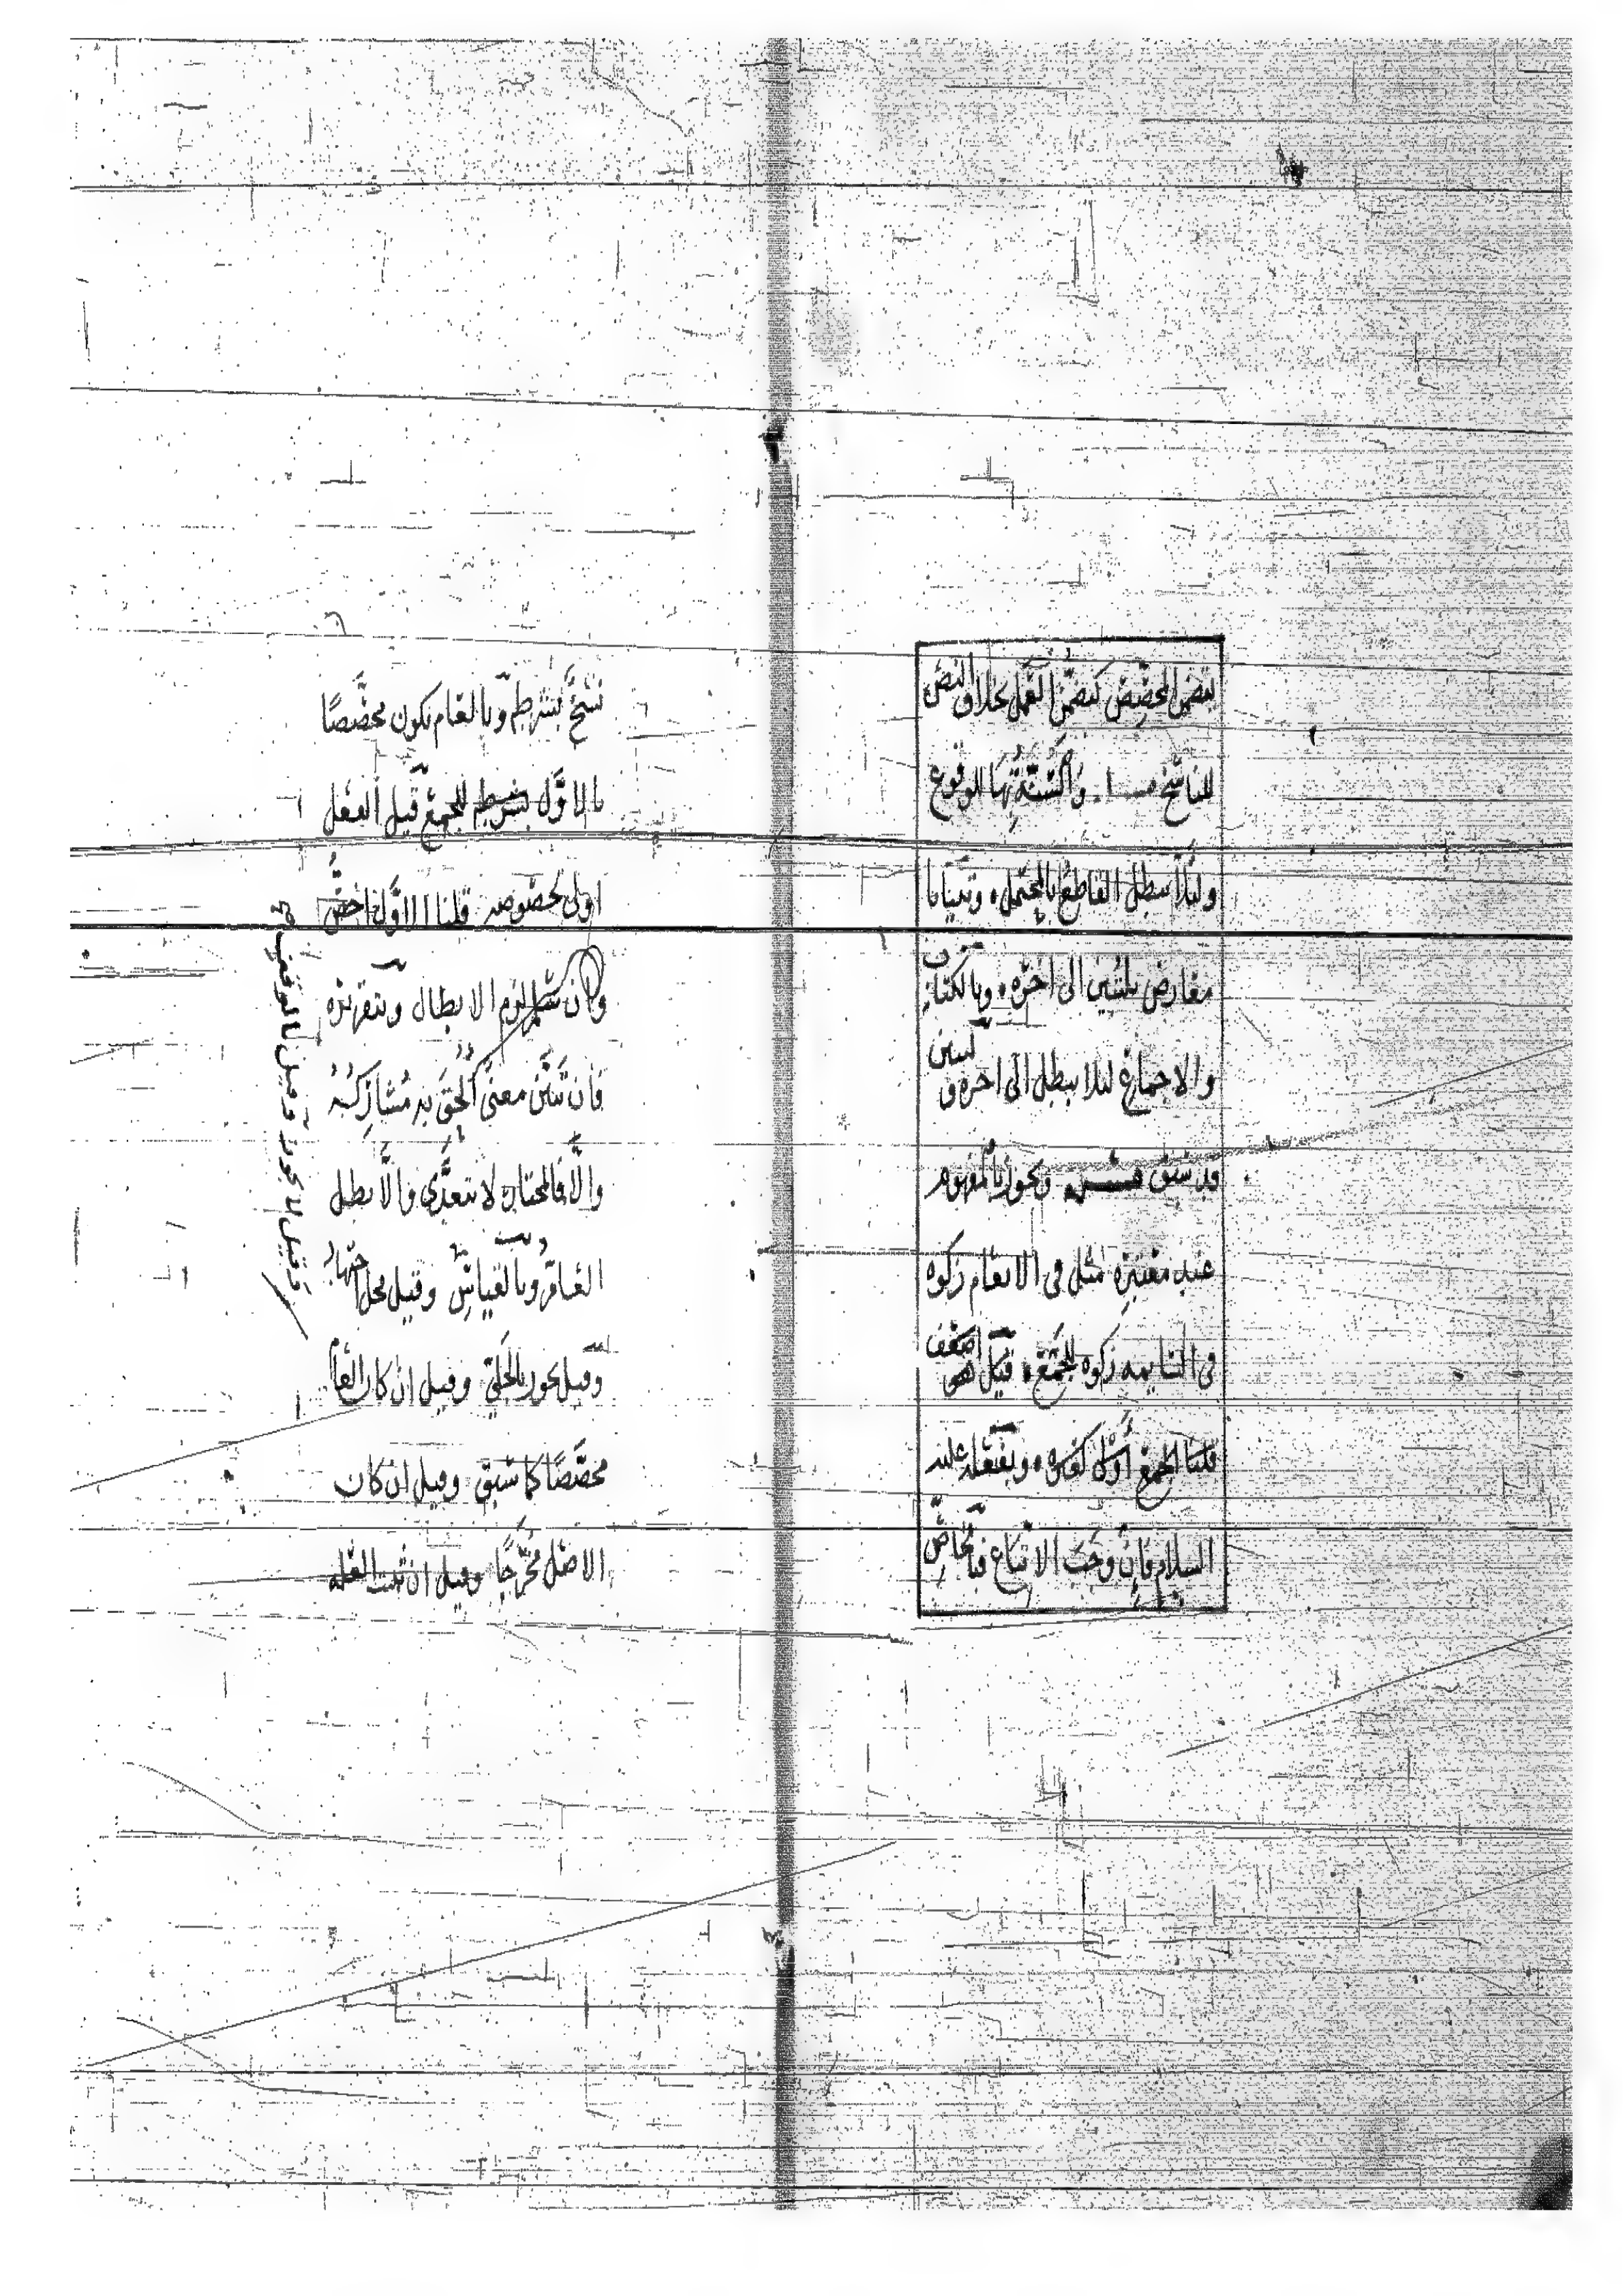 لتضمن المخصص كتضمن العمل بخلاف النص
للناسخ وأكسنّة بها للوقوع
ولئلا يبطل القاطع بالمحتمل وتبيانا
معارض بلتبين الى اخره وبالكتاب
والاجماع لئلا يبطل الى اخره لتبين
قد سبق ويجوز بالمفهوم
عند معتبره مثل في الانعام زكوه
في السايمه زكوه للجمع قيل اضعف
قلنا الجمع أولى كغيره وبفعله عليه
السلام فإن وجب الاتباع فبخاص
نسخ بشرطه وبالعام يكون مخصصا
بالاول بشرطه للجمع قيل الفعل
اولى لخصوصه قلنا الاول اخص
وان سلم لزم الابطال وبتقريره
فان تبين معنى الحق به مشاركه
والا فالمختار لا يتعدى والا بطل
العام وبالقياس وقيل محل اجتهاد
وقيل يجوز بالجلي وقيل ان كان العام
مخصصا كما سبق وقيل ان كان
الاصل مخرجا وقيل ان ثبتت العله
وقيل لا يجوز وقيل بالوقف